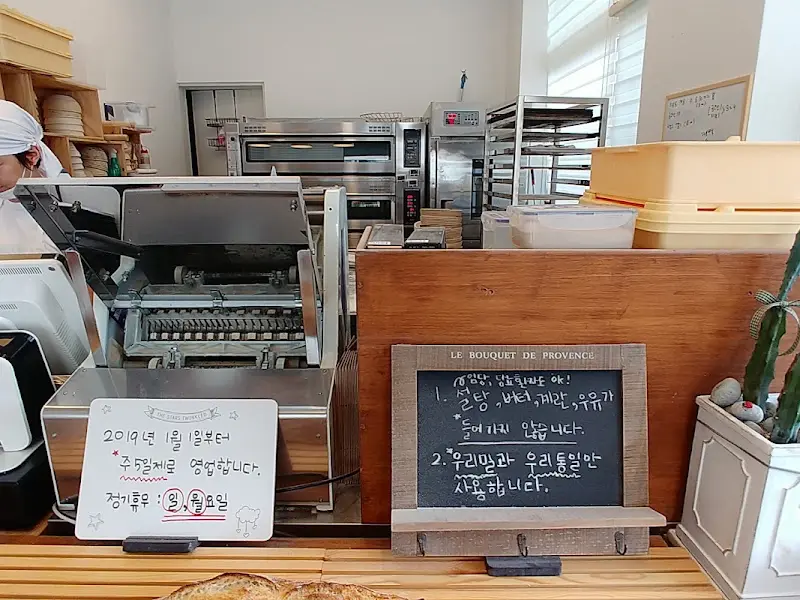 LE BOUQUET DE PROVENCE
1. 설탕, 버터, 계란, 우유가
들어가지 않습니다.
2. 우리밀과 우리통밀만
사용합니다.
THE STARS TWINKLED
2019년 1월 1일부터
주5일제로 영업합니다.
정기휴무 : 일, 월요일